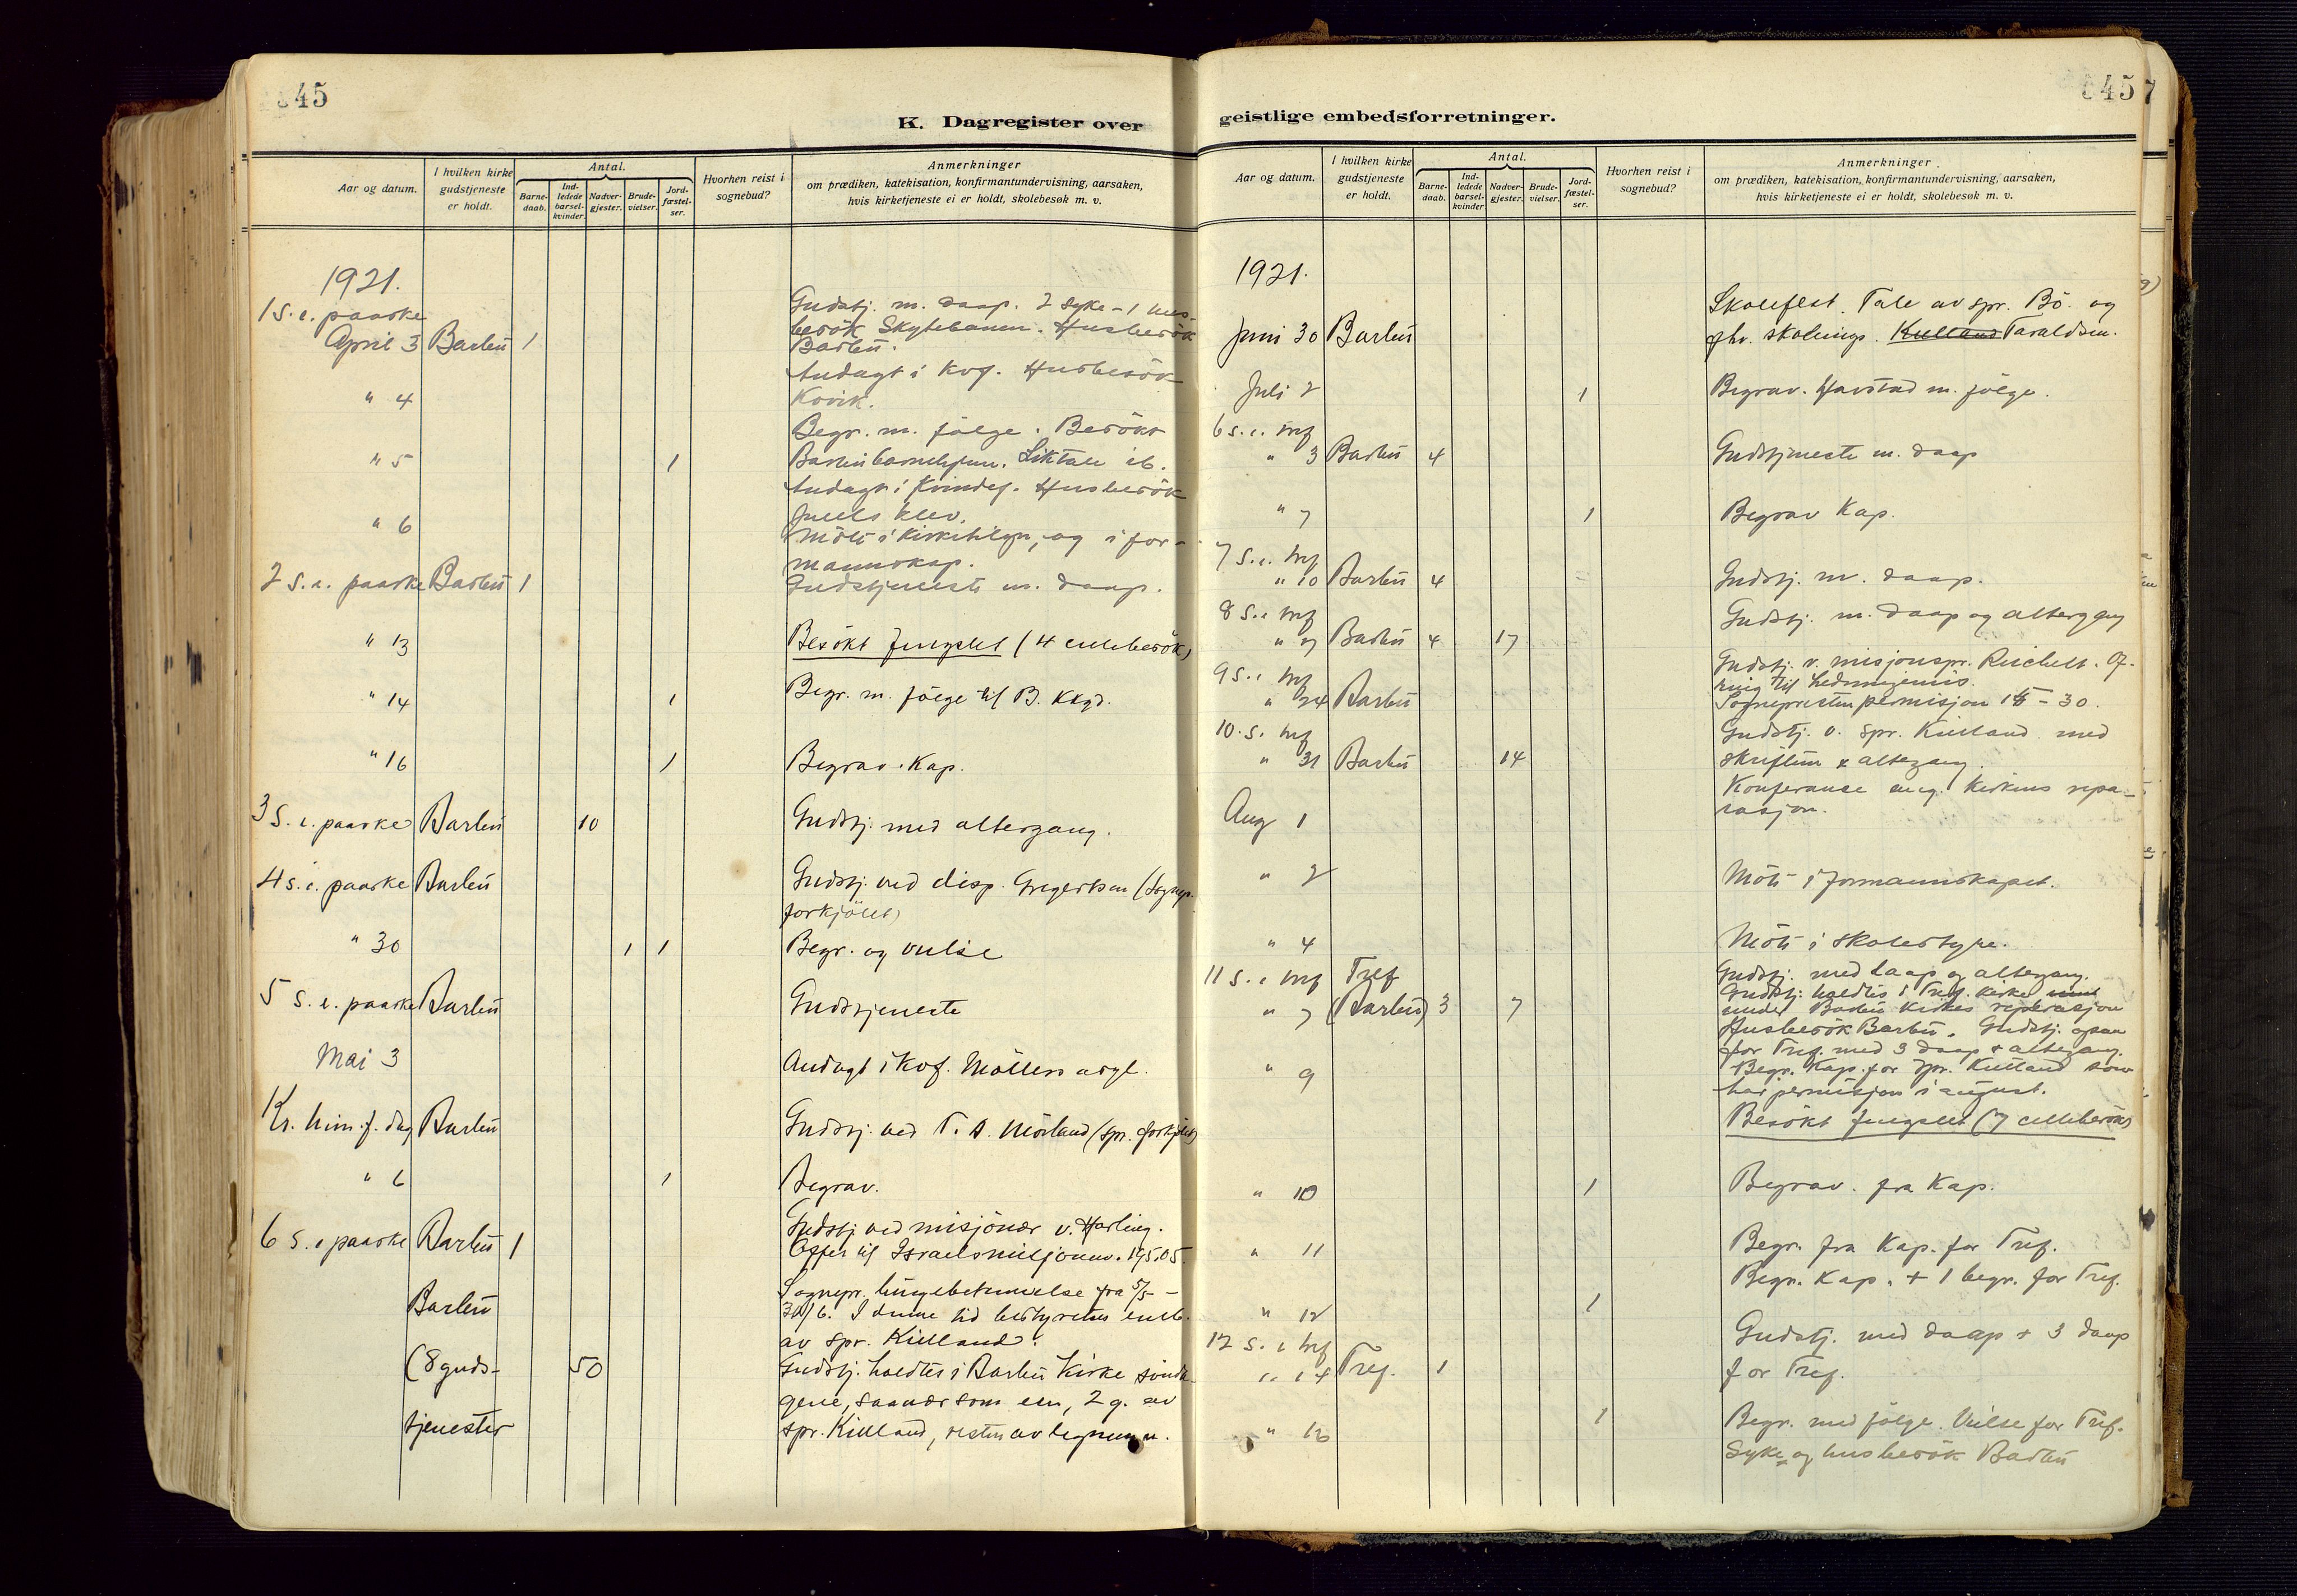 345
K. Dagregister over
Aar og datum.
I hvilken kirke gudstjeneste er holdt.
Antal.
Barne-daab.
Ind-ledede barsel-kvinder.
Nadver-gjester.
Brude-vielser.
Jord-fæstel-ser.
Hvorhen reist i sognebud?
Anmerkninger
om prædiken, katekisation, konfirmantundervisning, aarsaken,
hvis kirketjeneste ei er holdt, skolebesøk m. v.
1921.
1 S. e. paaske Gudstj. m. daap. 2 syke - 1 hus-
April 3 Barbu 1 besök Skytebanen. Husbesök
Barbu.
Andagt i Kvf. Husbesök
" 4 Kovik.
Begr. m. fölge. Besökt
" 5 1 Barbu barnehjem. Liktale ib.
Andagt i Kvindef. Husbesök
" 6 Juells klev.
Möte i Kirketilsyn, og i for-
mannskap.
2 S. e. paaske Barbu 1 Gudstjeneste m. daap.
" 13 Besökt fengslet (4 cellebesök)
" 14 1 Begr. m. fölge til B. Kkgd.
" 16 1 Begrav. Kap.
3 S. e. paaske Barbu 10 Gudstj. med altergang.
4 S. e. paaske Barbu Gudstj. ved disp. Gregertsen (Sognepr.
forkjölet)
" 30 1 1 Begr. og vielse
5 S. e. paaske Barbu Gudstjeneste
Mai 3 Andagt i Kvf. Möllers asyl.
Kr. him. f. dag Barbu Gudstj. ved T. A. Mörland (spr. forkjölet)
" 6 1 Begrav.
6 S. e paaske Barbu 1 Gudstj ved misjönær v. Harling.
Offer til Israelsmisjonen. 195.05.
Sognepr. lungebetennelse fra 5/5 -
Barbu 30/6. I denne tid bestyrtes emb.
av spr. Kielland.
(8 guds- 50 Gudstj. holdtes i Barbu Kirke sönda-
gene, saanær som een, 2 g. av
tjenester spr. Kielland, resten av legmenn.
345
geistlige embedsforretninger.
Aar og datum.
I hvilken kirke gudstjeneste er holdt.
Antal.
Barne-daab.
Ind-ledede barsel-kvinder
Nadver-gjester.
Brude-vielser.
Jord-fæstel-ser.
Hvorhen reist i sognebud?
Anmerkninger
om prædiken, katekisation, konfirmantundervisning, aarsaken,
hvis kirketjeneste ei er holdt, skolebesøk m. v.
1921.
Skolefest. Tale av spr. Bö. og
Juni 30 Barbu fhv. skoleinsp. Kielland Taraldsen.
Juli 2 1 Begrav. Havstad m. fölge.
6 S. e. tref
" 3 Barbu 4 Gudstjeneste m. daap
" 7 1 Begrav Kap.
7 S. e. tref
" 10 Barbu 4 Gudstj. m. daap.
8 S. e tref Gudstj. m. daap og altergang
" 17 Barbu 4 17
9 S. e tref Gudstj. v. misjonspr. Reichelt. Of-
" 24 Barbu Sogneprestens permisjon 15 - 30.
10. S. tref Gudstj. v. spr. Kielland med
" 31 Barbu 14 skriftem. & altergang.
Konferanse ang. Kirkens repa-
Aug 1 rasjon.
" 2 Möte i formannskapet.
" 4 Möte i skolestyre.
11 S. e tref Tref Gudstj. med daap og altergang.
" 7 (Barbu) 3 7 Gudstj. holdtes i Tref. Kirke
under Barbu Kirkes reperasjon
Husbesök Barbu. Gudstj. ogsaa
for Tref. med 3 daap & altergang.
" 9 Begr. Kap. for spr. Kielland som
har permisjon i august.
Besökt fengslet (7 cellebesök)
" 10 1 Begrav. fra Kap.
" 11 Begr. fra Kap. for Tref.
Begr. Kap. + 1 begr. for Tref.
" 12 1
12 S. e tref Gudstj. med daap + 3 daap
" 14 Tref. 1 for Tref.
" 16 1 Begr. med fölge. Vielse for Tref.
Syke og husbesök Barbu